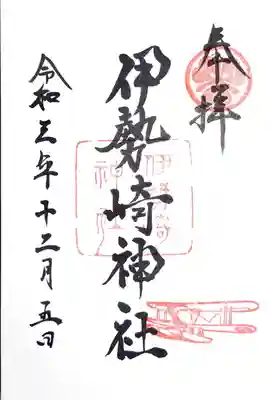 奉拝
伊勢崎神社
令和三年十二月五日
伊勢崎
神社